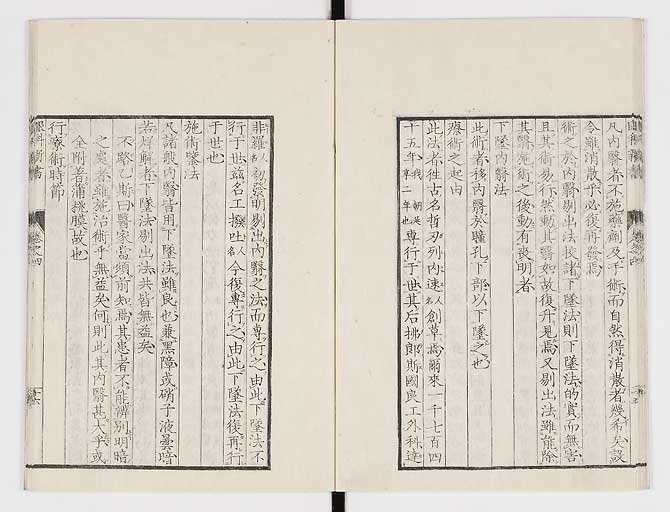 凡内瞖者不施藥劑及手術而自然得消散者幾希矣設
令雖消散乎必復再發焉
術之於内瞖剔出法校諸下墜法則下墜法的實而無害
且其術易行然動其瞖如故復升見焉又剔出法雖能除
其瞖施術之後動有喪明者
下墜内瞖法
此術者移内瞖於瞳孔下部以下墜之也
療術之起由
此法者徃古名哲刄列内速人名創草焉爾來一千七百四
十五年我朝是享二年也專行于世其后拂郎斯國良工外科達
非羅人名初發明剔出内瞖之法而專行之由此下墜法不
行于世茲名工撥吐人名今復專行之由此下墜法復再行
于世也
施術墜法
凡諸般内瞖皆用下墜法雖良也兼黑障或硝子液曇暗
若焊解者下墜法剔出法共皆無益矣
不賂乙斯曰醫家當須前知焉其患者不能辨別明暗
之處者雖施治術乎無益矣何則此其内瞖甚大乎或
全附著蒲桃膜故也
行療術時節
眼科新書